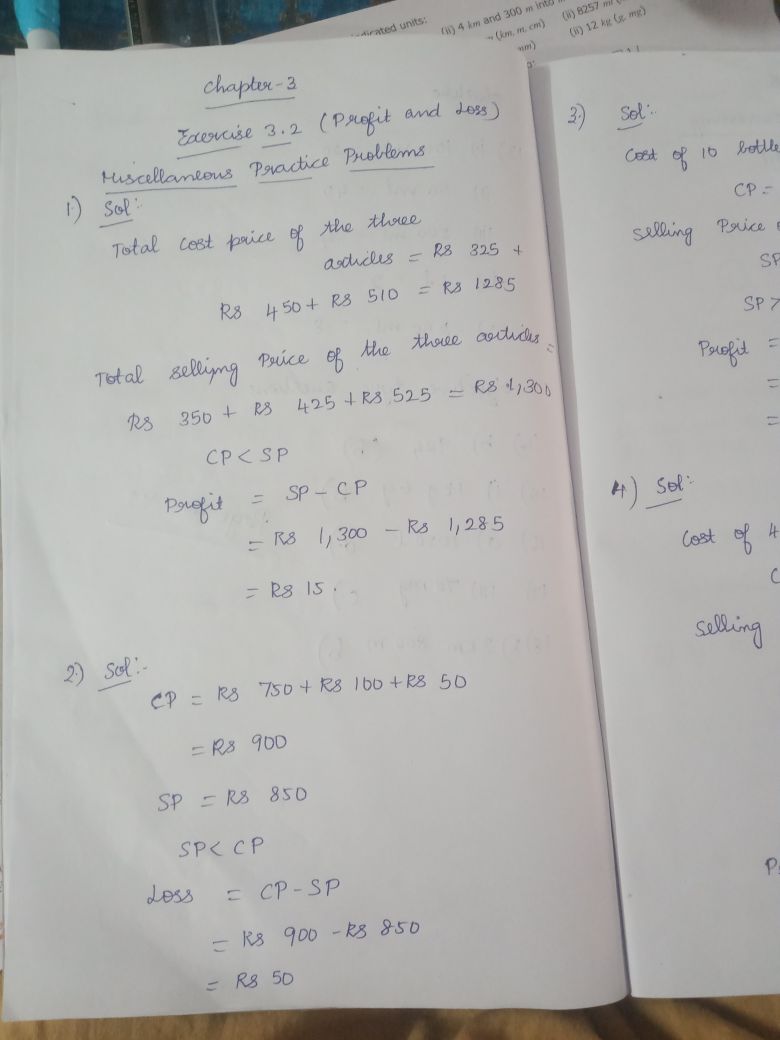 dicated units:
(ii) 4 km and 300 m into m
(ii) 8257 ml
(km, m, cm)
(ii) 12 kg (g, mg)
Chapter-3
Exercise 3.2 (Profit and Loss)
Miscellaneous Practice Problems
1) Sol:-
Total cost price of the three
articles = Rs 325 +
Rs 450 + Rs 510 = Rs 1285
Total selling Price of the three articles =
Rs 350 + Rs 425 + Rs 525 = Rs 1,300
CP < SP
Profit = SP - CP
= Rs 1,300 - Rs 1,285
= Rs 15.
2) Sol:-
CP = Rs 750 + Rs 100 + Rs 50
= Rs 900
SP = Rs 850
SP < CP
Loss = CP - SP
= Rs 900 - Rs 850
= Rs 50
3) Sol:-
Cost of 10 bottle
CP =
Selling Price
SP
SP >
Profit =
=
=
4) Sol:-
Cost of 4
C
Selling
P